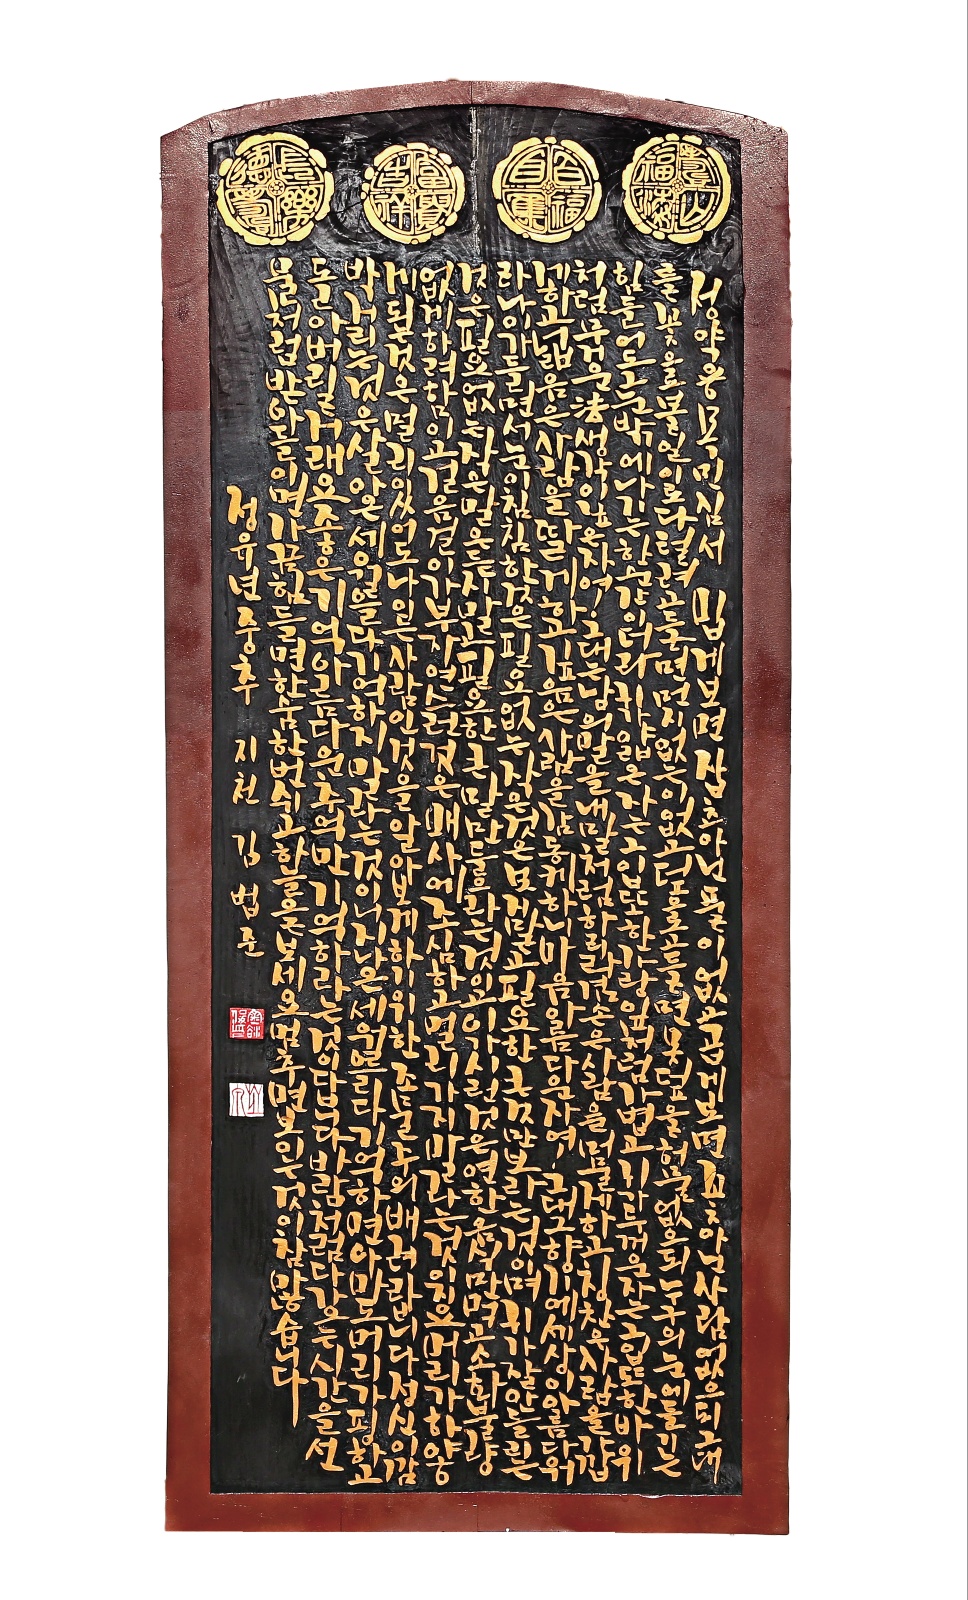 壽山福海
百福自集
富貴吉祥
長樂
정약용 목민심서 밉게보면 잡초아닌 풀이 없고 곱게보면 꽃아닌 사람없으되 그대
를 꽃으로볼일이로다 털려고들면먼지없는이없고 덮으려고들면 못덮을허물없으되 누구의눈에들긴
힘들어도 그눈밖에나기는한순간이더라 귀가얇은자는 그입또한가랑잎처럼가볍고 귀가두꺼운자는 그입또한바위
처럼무거운法 생각이깊은자여! 그대는남의말을내말처럼하리라 겸손은사람을머물게하고칭찬은사람을가깝
게하고 넓음은사람을따르게하고 깊음은사람을감동케하니마음이아름다운자여! 그대그향기에세상이아름다워
라 나이가들면서눈이침침한것은필요없는작은것은보지말고필요한큰것만보라는것이며 귀가잘안들리는
것은필요없는작은말은듣지말고 필요한큰말만들으라는것이고 이가시린것은연한음식만먹고소화불량
없게하려함이고 걸음걸이가부자연스런것은 매사에조심하고멀리가지말라는것이리라 머리가하얗
게되는것은멀리있어도나이든사람인것을알아보게하기위한조물주의배려랍니다 정신이깜
박거리는것은살아온세월을다기억하지말라는것이니 지나온세월을다기억하면아마도머리가핑하고
돌아버릴거래요 좋은기억아름다운추억만기억하라는것이랍니다 바람처럼다가오는시간을선
물처럼받아들이며가끔힘들면한숨한번쉬고하늘을보세요 멈추면보이는것이참많습니다
정유년중추 지천 김법준